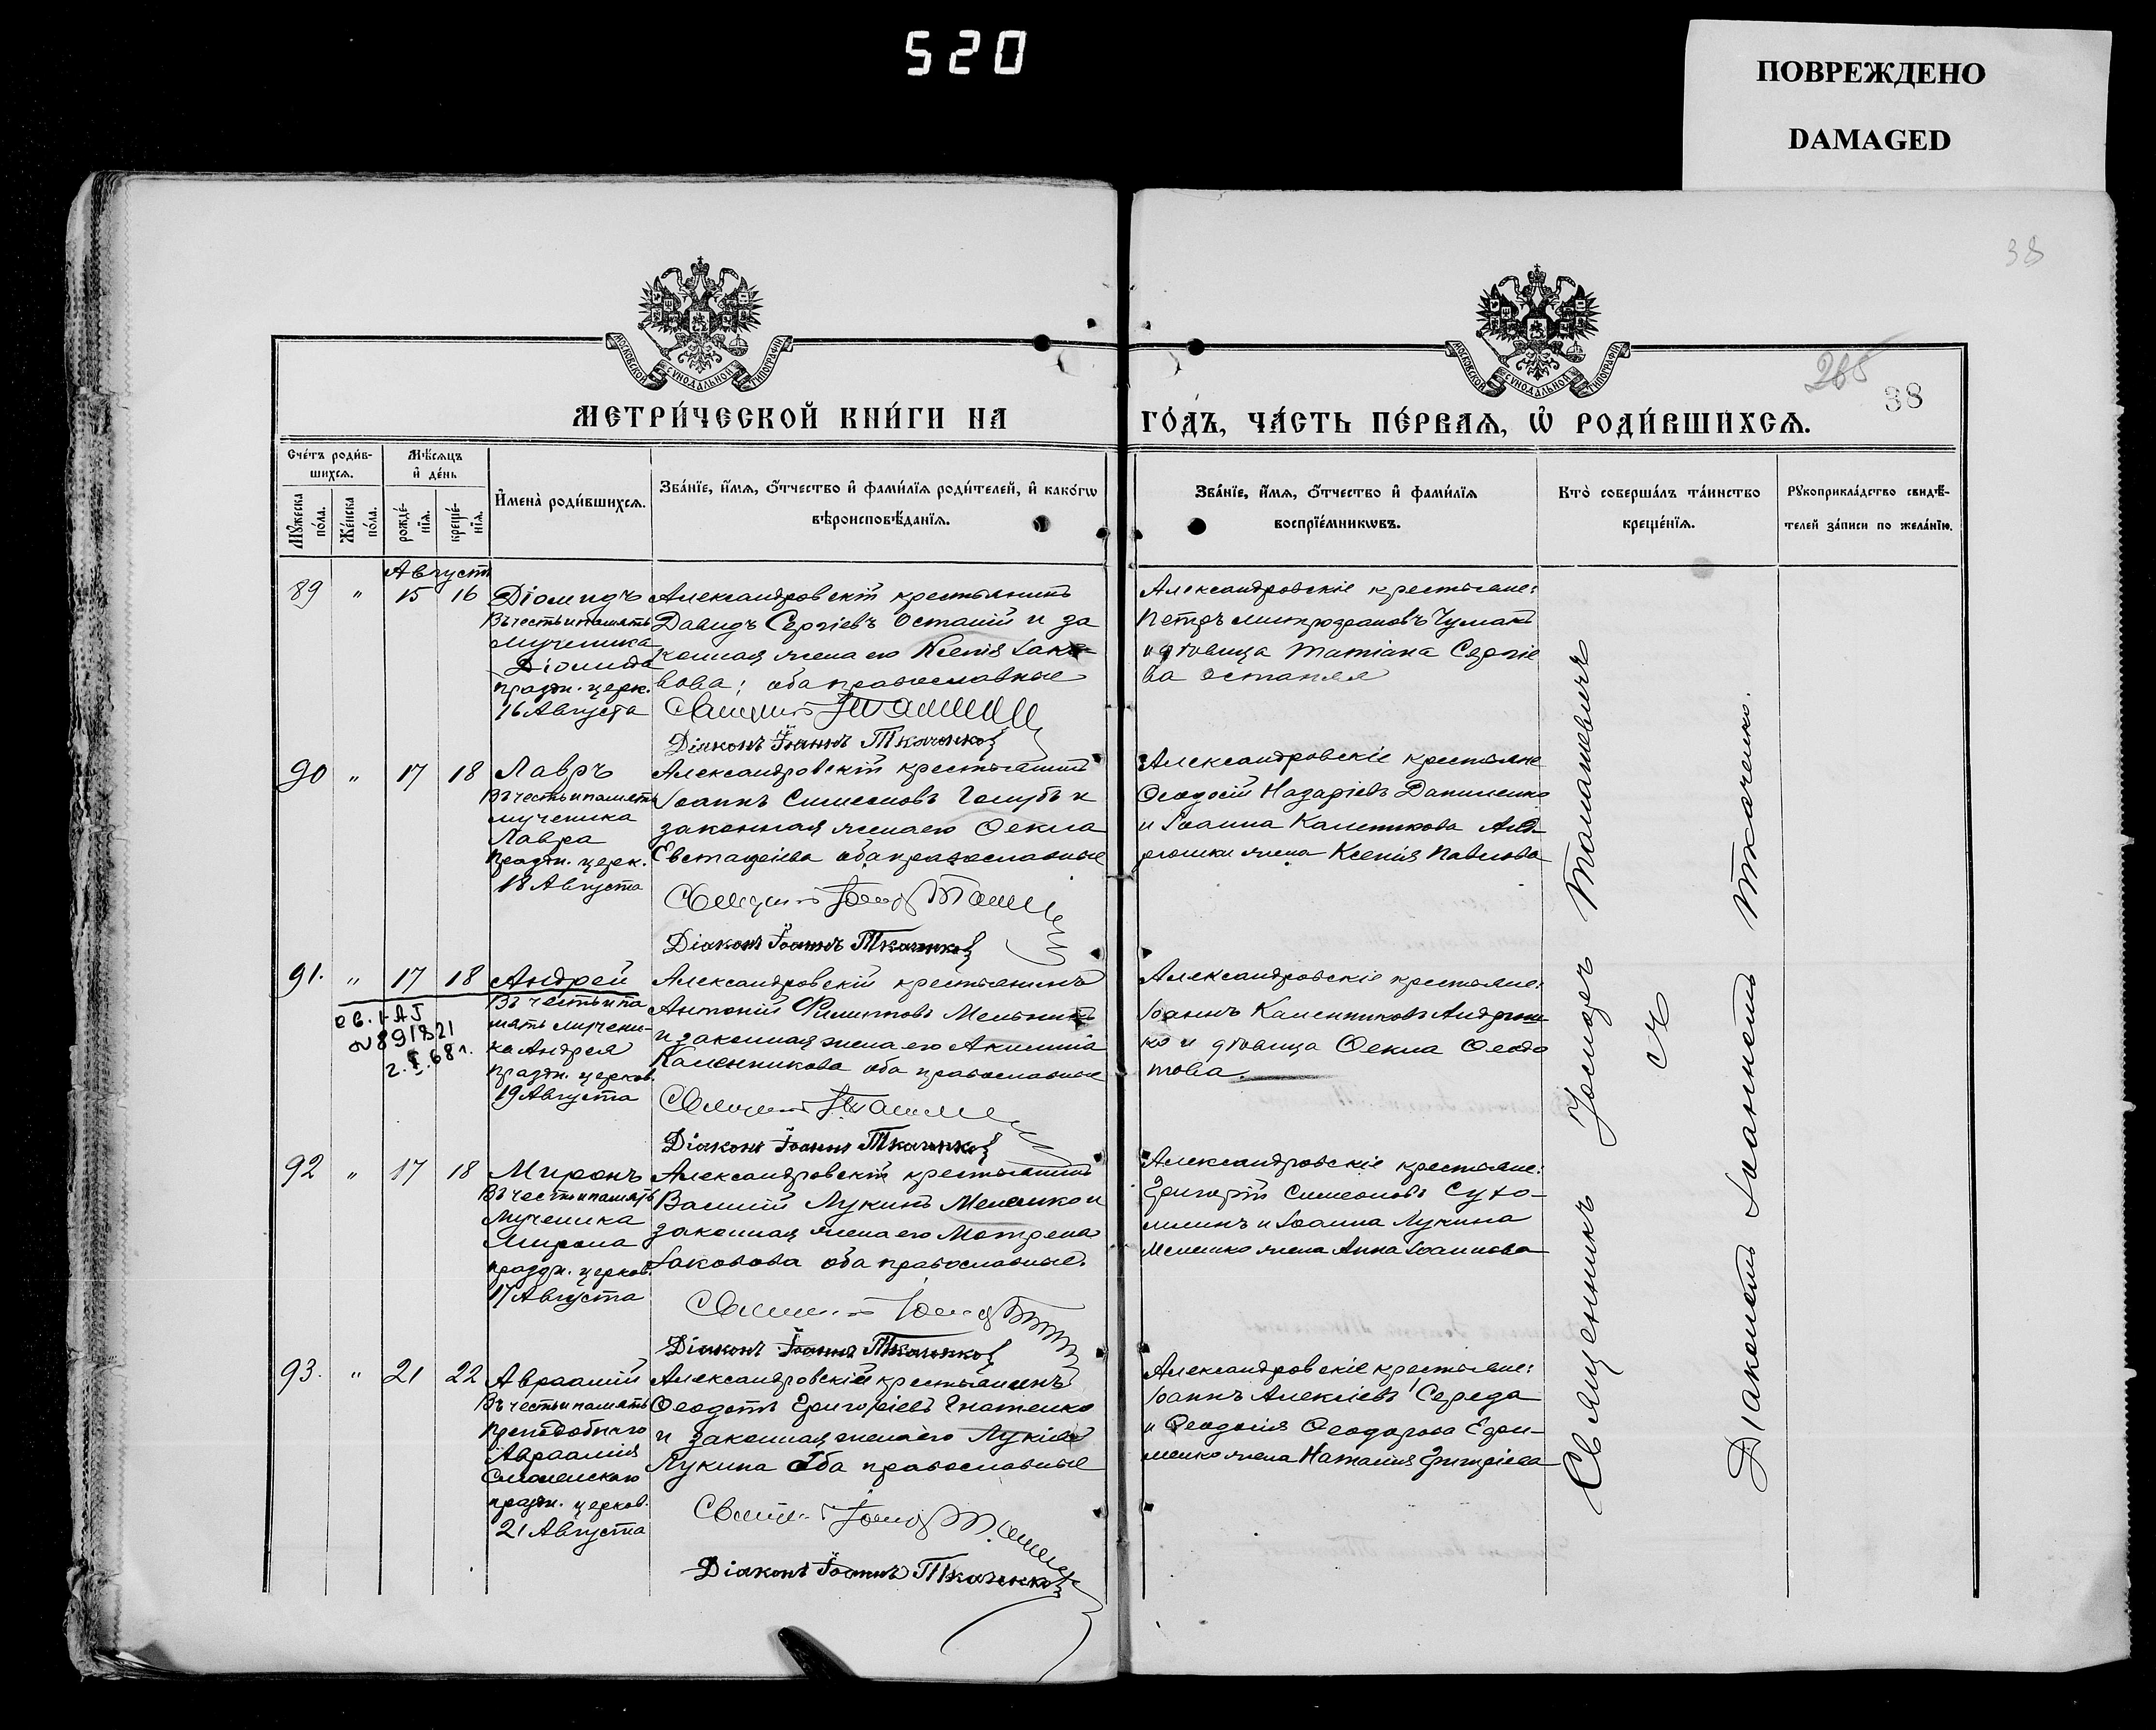 520
ПОВРЕЖДЕНО
DAMAGED
38
265
38
МОСКОВСКОЙ СѴНОДАЛЬНОЙ ТИПОГРАФІИ
МОСКОВСКОЙ СѴНОДАЛЬНОЙ ТИПОГРАФІИ
МЕТРИ́ЧЕСКОЙ КНИ́ГИ НА ГО́ДЪ, ЧА́СТЬ ПЕ́РВАѦ, Ѡ҆ РОДИ́ВШИХСѦ.
Сче́тъ роди́в-
шихсѧ.
Мꙋ́жеска по́ла.
Же́нска по́ла.
Мѣ́сѧцъ
и҆ де́нь
рожде́-
нїѧ.
креще́-
нїѧ.
И҆мена̀ роди́вшихсѧ.
Зва́нїе, и҆́мѧ, ѻ҆́тчество и҆ фами́лїѧ роди́телей, и҆ како́гѡ
вѣроисповѣ́данїѧ.
Зва́нїе, и҆́мѧ, ѻ҆́тчество и҆ фами́лїѧ
воспрїе́мникѡвъ.
Кто̀ соверша́лъ та́инство
креще́нїѧ.
Рꙋкоприкла́дство свидѣ́-
телей за́писи по жела́нїю.
Августъ
89 " 15 16
Діомидъ
Въ честь и память
мученика
Діомида
праздн. церк.
16 Августа
Александровскій крестьянинъ
Давидъ Сергіевъ Остапій и за
конная жена его Ксенія Іако-
вова; оба православные
Діаконъ Іоаннъ Ткаченко
Александровскіе крестьяне:
Петръ Митрофановъ Чумакъ
и дѣвица Татіана Сергіе
ва Остапяя
90 " 17 18
Лавръ
Въ честь и память
мученика
Лавра
праздн. церк.
18 Августа
Александровскій крестьянинъ
Іоаннъ Симеоновъ Голубъ и
законная жена его Ѳекла
Евстафіева оба православные
Діаконъ Іоаннъ Ткаченко
Александровскіе крестьяне
Ѳеодосій Назаріевъ Даниленко
и Іоанна Каленикова Анд-
рюшки жена Ксенія Павлова
91. " 17 18
Андрей
Въ честь и па
мять мучени-
ка Андрея
праздн. церков.
19 Августа
св. I-АГ
№ 891821
2.I.68 г.
Александровскій крестьянинъ
Антоній Филиповъ Мельникъ
и законная жена его Акилина
Каленникова оба православные
Діаконъ Іоаннъ Ткаченко
Александровскіе крестьяне:
Іоаннъ Каленниковъ Андрюш-
ко и дѣвица Ѳекла Ѳеодо
това.
92 " 17 18
Миронъ
Въ честь и память
Мученика
Мирона
праздн. церков.
17 Августа
Александровскій крестьянинъ
Василій Лукинъ Мелешко и
законная жена его Матрена
Іаковова оба православные.
Діаконъ Іоаннъ Ткаченко
Александровскіе крестьяне:
Григорій Симеоновъ Сухо-
млинъ и Іоанна Лукина
Мелешко жена Анна Іоаннова
93. " 21 22
Авраамій
Въ честь и память
Преподобнаго
Авраамія
Смоленскаго
праздн. церков.
21 Августа
Александровскій крестьянинъ
Ѳеодотъ Григоріевъ Гнатенко
и законная жена его Лукія
Лукина оба православные
Діаконъ Іоаннъ Ткаченко
Александровскіе крестьяне:
Іоаннъ Алексіевъ Середа
и Ѳеодосія Ѳеодорова Ефи-
менко жена Наталія Григоріева
Священникъ Іосифъ Томашевичъ
съ
Діакономъ Іоанномъ Ткаченко.